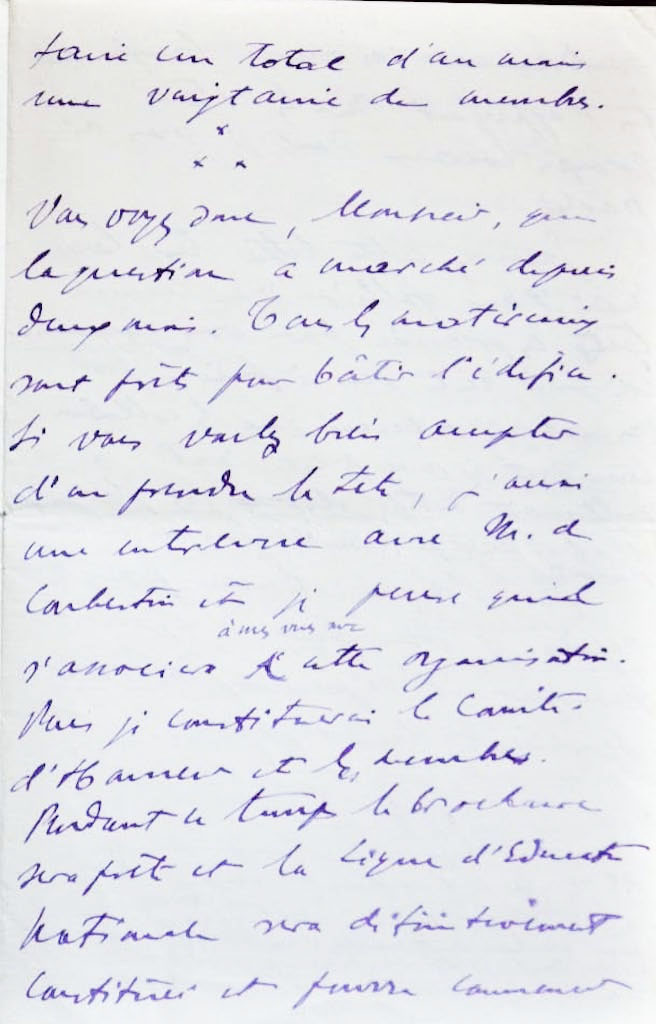 faire un total d'au moins
une vingtaine de membres.
* * *
Vous voyez donc, Monsieur, que
la question a marché depuis
deux mois. Tous les matériaux
sont prêts pour bâtir l'édifice.
Si vous voulez bien accepter
d'en prendre la tête, j'aurai
une entrevue avec M. de
Coubertin et je pense qu'il
s'associera à mes vues sur cette organisation.
Puis je constituerai le Comité
d'Honneur et les membres.
Pendant ce temps la brochure
sera prête et la Ligue d'Education
Nationale sera définitivement
constituée et pourra commencer